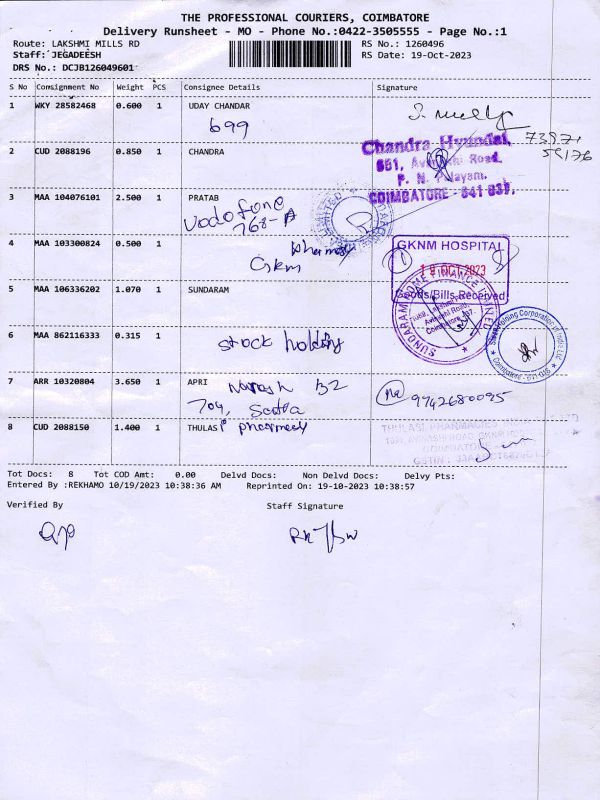 THE PROFESSIONAL COURIERS, COIMBATORE
Delivery Runsheet - MO - Phone No.:0422-3505555 - Page No.:1
Route: LAKSHMI MILLS RD
RS No.: 1260496
Staff: JEGADEESH
RS Date: 19-Oct-2023
DRS No.: DCJB126049601
S No Consignment No Weight PCS Consignee Details Signature
1 WKY 28582468 0.600 1 UDAY CHANDAR
699
2 CUD 2088196 0.850 1 CHANDRA
Chandra Hyundai,
Road,
P. N. Palayam,
COIMBATORE - 641 037.
3 MAA 104076101 2.500 1 PRATAB
Vodafone
768-A
4 MAA 103300824 0.500 1
pharmacy
Gknm
GKNM HOSPITAL
19 OCT 2023
Goods/Bills Received
5 MAA 106336202 1.070 1 SUNDARAM
SUNDARAM HOME FINANCE LIMITED
6 MAA 862116333 0.315 1
stock holding
7 ARR 10320804 3.650 1 APRI
704,
9742680095
8 CUD 2088150 1.400 1 THULASI pharmacy
THULASI PHARMACIES
Tot Docs: 8 Tot COD Amt: 0.00 Delvd Docs: Non Delvd Docs: Delvy Pts:
Entered By :REKHAMO 10/19/2023 10:38:36 AM Reprinted On: 19-10-2023 10:38:57
Verified By Staff Signature